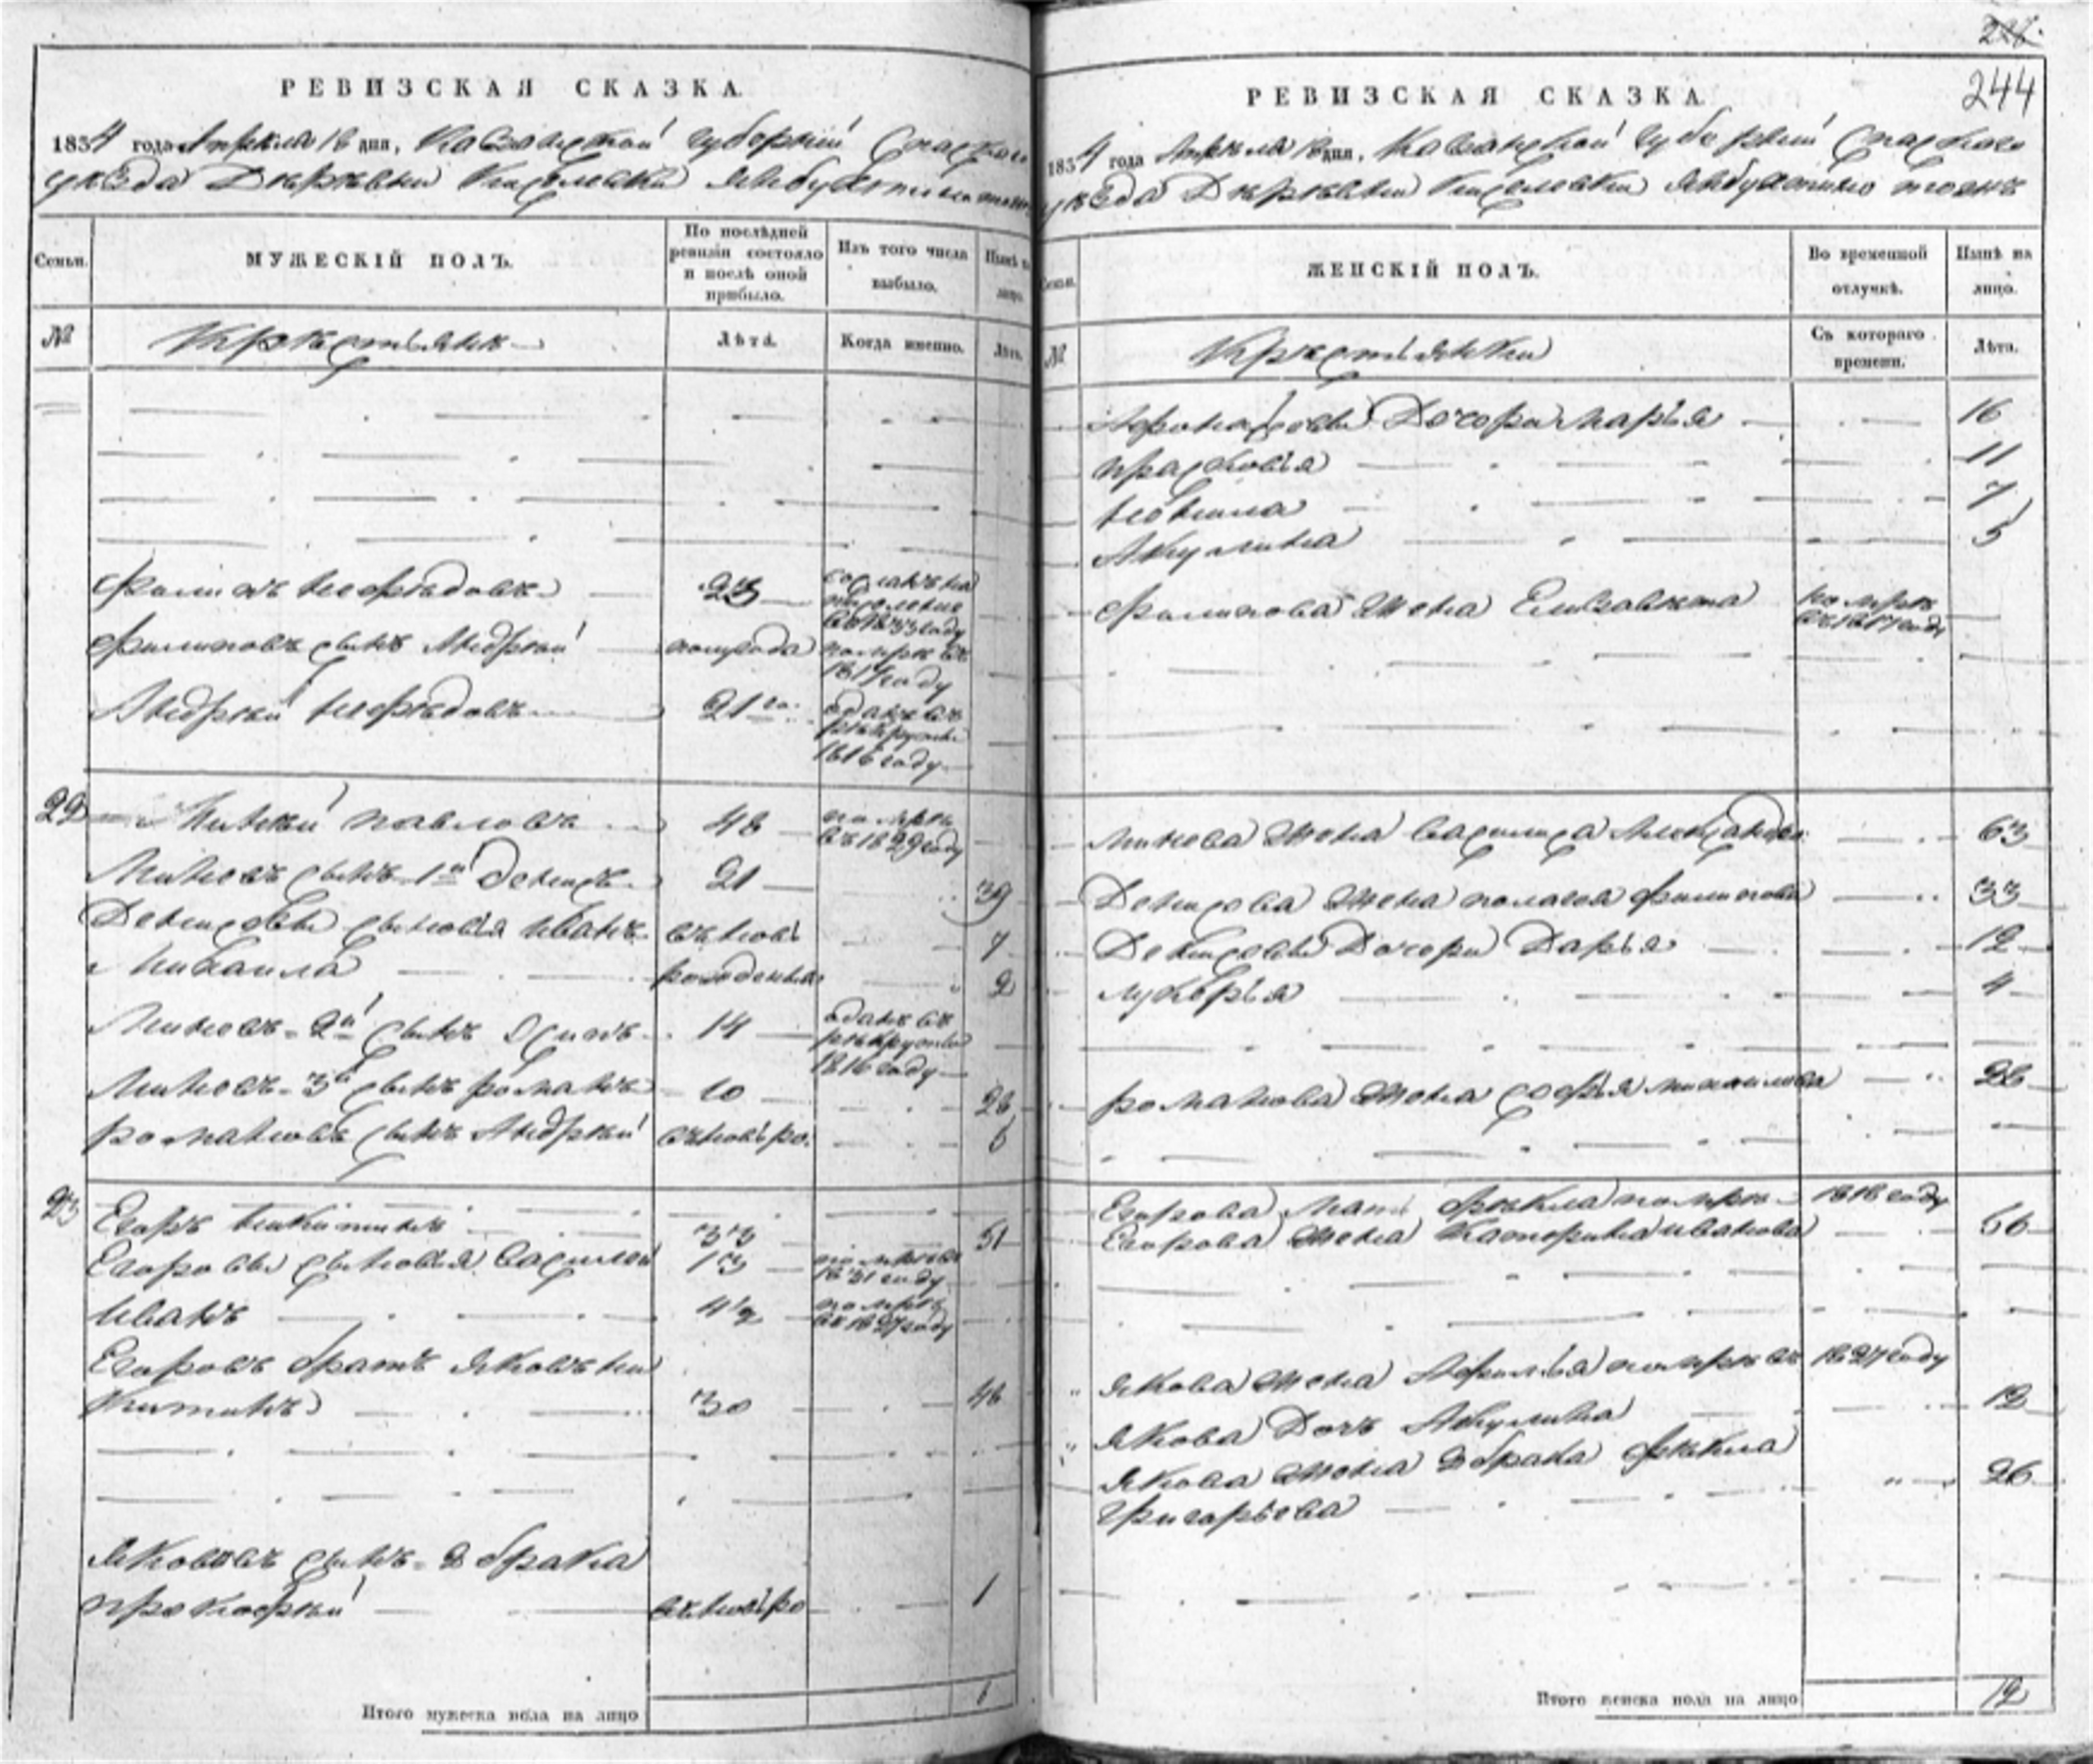 226
244
РЕВИЗСКАЯ СКАЗКА.
1834 года Апреля 16 дня, Казанской губернии Спаского
уезда Деревни Киселевки
Семьи.
МУЖЕСКІЙ ПОЛЪ.
По послѣдней ревизіи состояло и послѣ оной прибыло.
Изъ того числа выбыло.
Нынѣ на лицо.
№
Крестьяне
Лѣта.
Когда именно.
Лѣта.
Филипъ Нефедовъ 23 сосланъ на
поселение
въ 1833 году
Филиповъ сынъ Андрей полугода помре въ
1817 году
Андрей Нефедовъ 21 го отданъ въ
рекруты
1816 году
22 Миней Павловъ 48 помре
въ 1829 году
Миневъ сынъ 1й Денисъ 21 39
Денисовы сыновья Иванъ въ новь 7
Михаила рожденные 2
Миневъ 2й сынъ Осипъ 14 отданъ въ
рекруты
1816 году
Миневъ 3й сынъ Романъ 10 28
Романовъ сынъ Андрей въ новь ро. 6
23 Егоръ Никитинъ 33 51
Егоровы сыновья Василей 13 помре въ
1831 году
Иванъ 4½ помре
въ 1827 году
Егоровъ братъ Яковъ Ни
китинъ 30 48
Яковов сынъ 2 брака
Прокофей въ новь ро 1
Итого мужеска пола на лицо
РЕВИЗСКАЯ СКАЗКА.
1834 года Апреля 16 дня, Казанской губернии Спаского
уезда Деревни Киселевки
Семьи.
ЖЕНСКІЙ ПОЛЪ.
Во временной отлучкѣ.
Нынѣ на лицо.
№
Крестьянки
Съ котораго времени.
Лѣта.
Афонасовы Дочери Марья 16
Прасковья 11
7
Акулина 5
Филипова Жена Елизавета помре
въ 1817 году
Минева Жена Василиса Александро 63
Денисова Жена Полагея Филипова 33
Денисовы Дочери Дарья 12
Лукерья 4
Романова Жена Софья Михаилова 26
Егорова Мать Фекла помре 1818 году
Егорова Жена Катерина Иванова 56
Якова Жена помре въ 1827 году
Якова Дочь Акулина 12
Якова Жена 2 брака Фекла
Григорьева 26
Итого женска пола на лицо 12